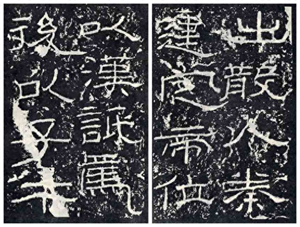 出散入秦
建定帝位
以漢詆焉
後以子午